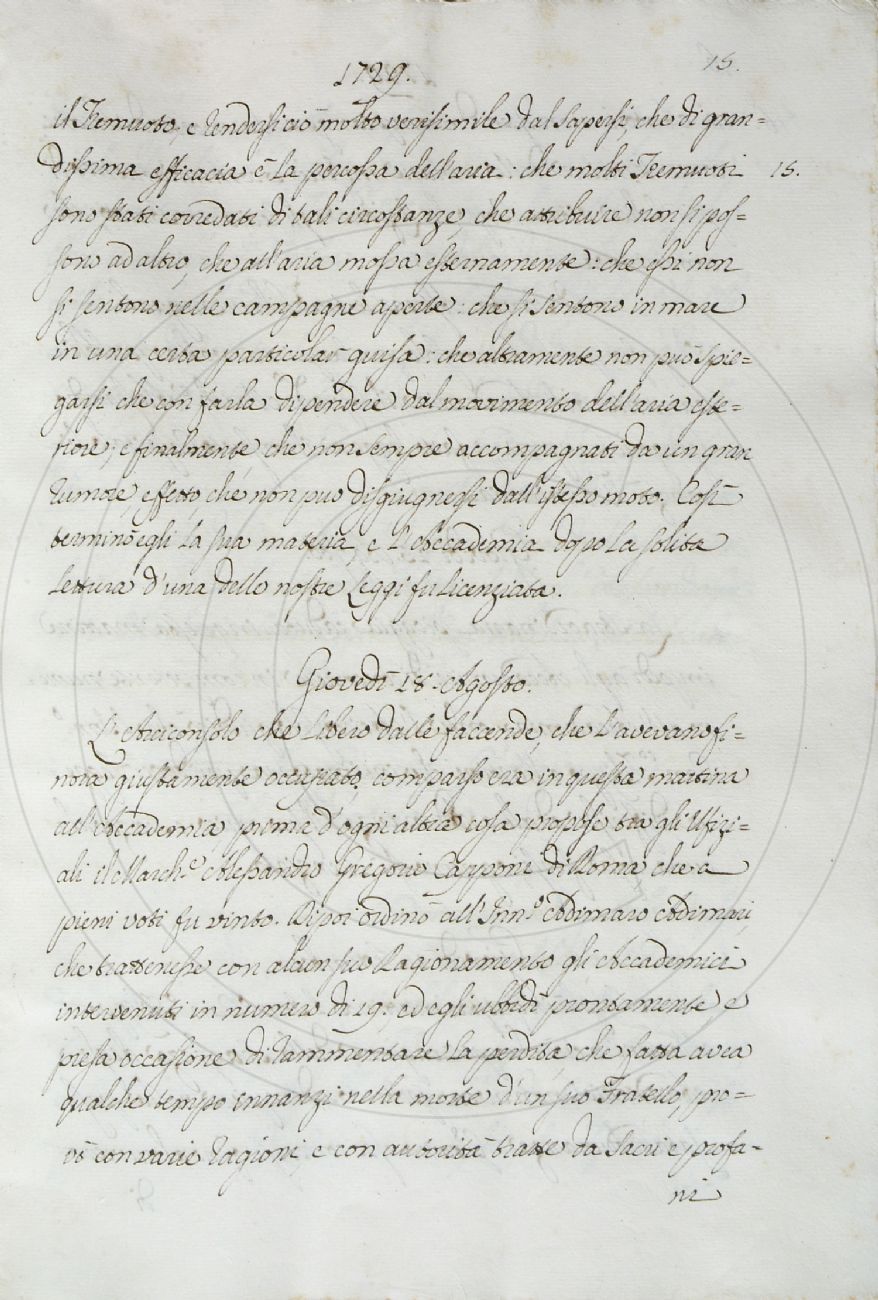 15.
1729.
il Tremuoto, e rendersi ciò molto verisimile dal sapersi, che di gran=
dissima efficacia è la percossa dell'aria: che molti Tremuoti 15.
sono stati corredati di tali circostanze, che attribuire non si pos=
sono ad altro, che all'aria mossa esternamente: che essi non
si sentono nelle campagne aperte: che si sentono in mare
in una certa particolar guisa: che altramente non può spie=
garsi che con farla dipendere dal movimento dell'aria este=
riore; e finalmente che non sempre accompagnati da un gran
rumore effetto che non può disgiugnersi dall'istesso moto. Così
terminò egli la sua materia, e l'Accademia dopo la solita
lettura d'una delle nostre Leggi fu licenziata.
Giovedì 18. Agosto.
L'Arciconsolo che libero dalle faccende, che l'avevano fi=
nora giustamente occupato, comparso era in questa mattina
all'Accademia, prima d'ogni altra cosa propose tra gli Ufizi=
ali il March.e Alessandro Gregorio Capponi di Roma che a
pieni voti fu vinto. Dipoi ordinò all'Inn.o Adimaro Adimari
che trattenesse con alcun suo Ragionamento gli Accademici
intervenuti in numero di 19. ed egli ubbidì prontamente e
presa occasione di rammentare la perdita, che fatta avea
qualche tempo innanzi nella morte d'un suo Fratello, pro=
vò con varie ragioni, e con autorità tratte da Sacri e profa=
ni